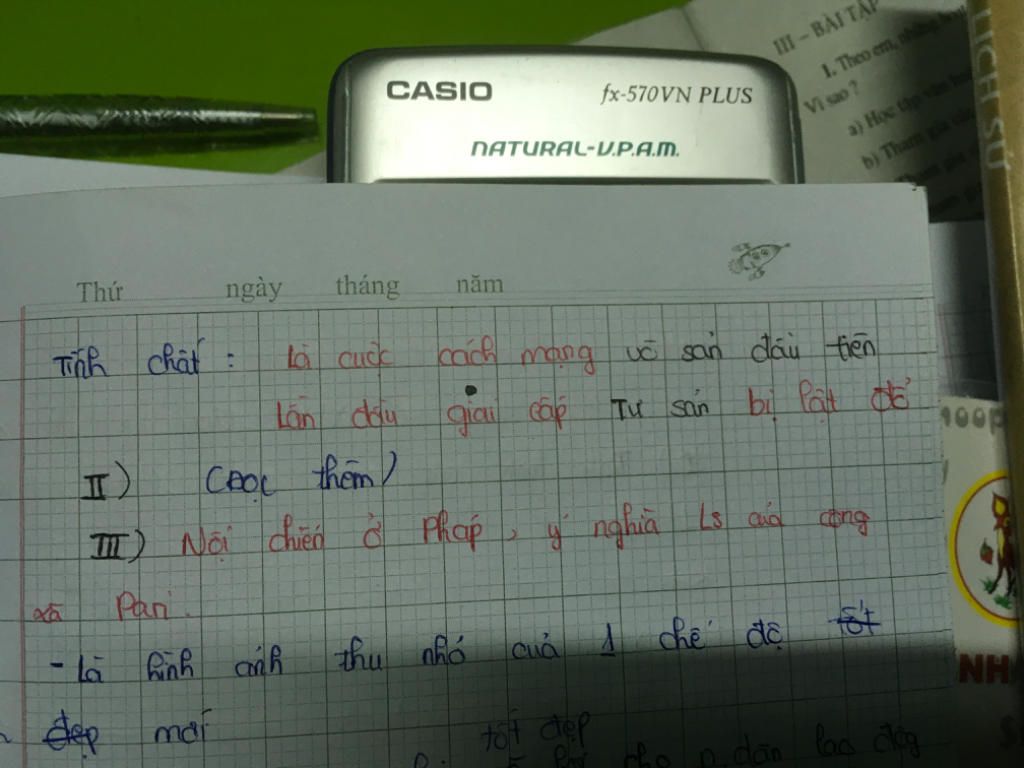 III – BÀI TẬP
1. Theo em, những
Vì sao ?
a) Học tập văn
b) Tham gia các
Tham gia
LỊCH SỬ
CASIO fx-570VN PLUS
NATURAL-V.P.A.M.
Thứ ngày tháng năm
Tính chất : Là cuộc cách mạng vô sản đầu tiên
Lần đầu giai cấp Tư sản bị lật đổ
II) (Đọc thêm)
III) Nội chiến ở Pháp, ý nghĩa Ls của công
xã Pari.
- Là hình ảnh thu nhỏ của 1 chế độ tốt
đẹp mới tốt đẹp
cho n.dân lao động
100p
NH